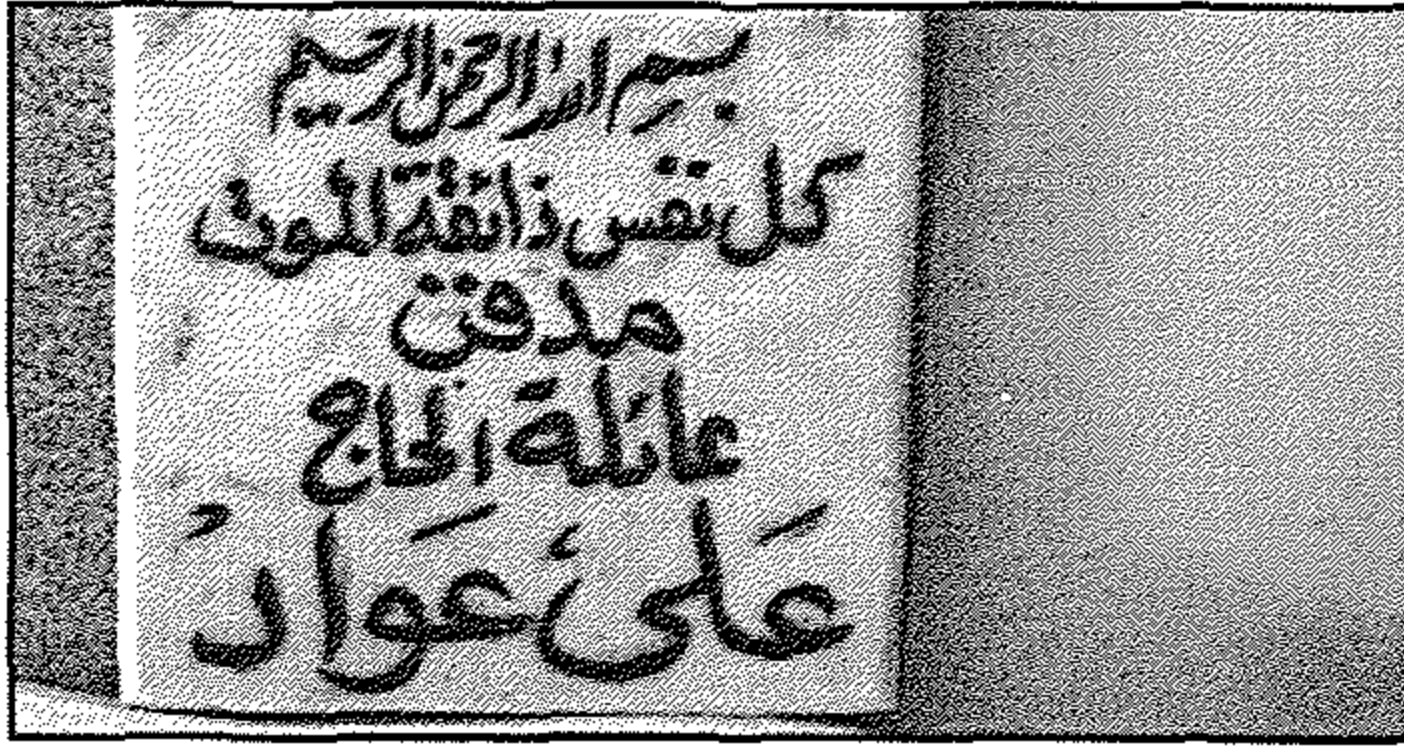 بسم الله الرحمن الرحيم
كل نفس ذائقة الموت
مدفن
عائلة الحاج
عَلىِ عَوادْ